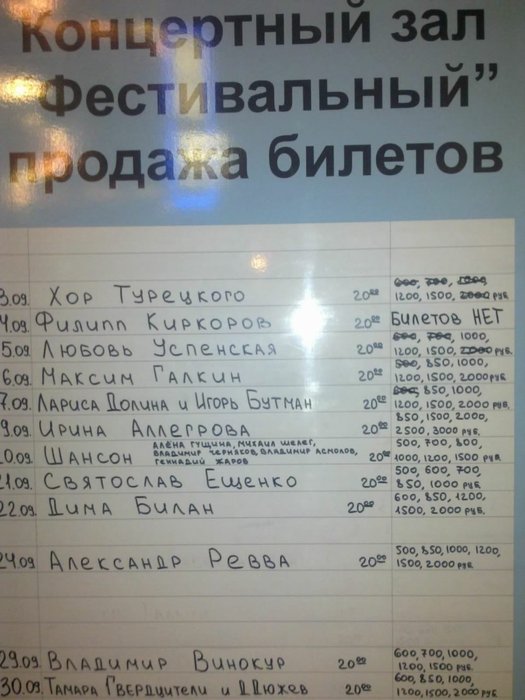 Концертный зал
Фестивальный”
продажа билетов
3.09. Хор Турецкого 20⁰⁰ 600, 700, 1000,
1200, 1500, 2000 руб
4.09. Филипп Киркоров 20⁰⁰ Билетов НЕТ
5.09. Любовь Успенская 20⁰⁰ 600, 700, 1000,
1200, 1500, 2000 руб.
6.09. Максим Галкин 20⁰⁰ 500, 850, 1000,
1200, 1500, 2000 руб
7.09. Лариса Долина и Игорь Бутман 20⁰⁰ 600, 850, 1000,
1200, 1500, 2000 руб.
9.09. Ирина Аллегрова 20⁰⁰ 850, 1500, 2000,
2500, 3000 руб.
20.09. Шансон Алёна Гущина, Михаил Шелег,
Владимир Черняков, Владимир Асмолов,
Геннадий Жаров 20⁰⁰ 500, 700, 800,
1000, 1200, 1500 руб
21.09. Святослав Ещенко 20⁰⁰ 500, 600, 700,
850, 1000 руб
22.09. Дима Билан 20⁰⁰ 600, 850, 1200,
1500, 2000 руб.
24.09. Александр Ревва 20⁰⁰ 500, 850, 1000, 1200,
1500, 2000 руб
29.09. Владимир Винокур 20⁰⁰ 600, 700, 1000,
1200, 1500 руб.
30.09. Тамара Гвердцители и Д.Дюжев 20⁰⁰ 600, 850, 1000,
1200, 1500, 2000 руб